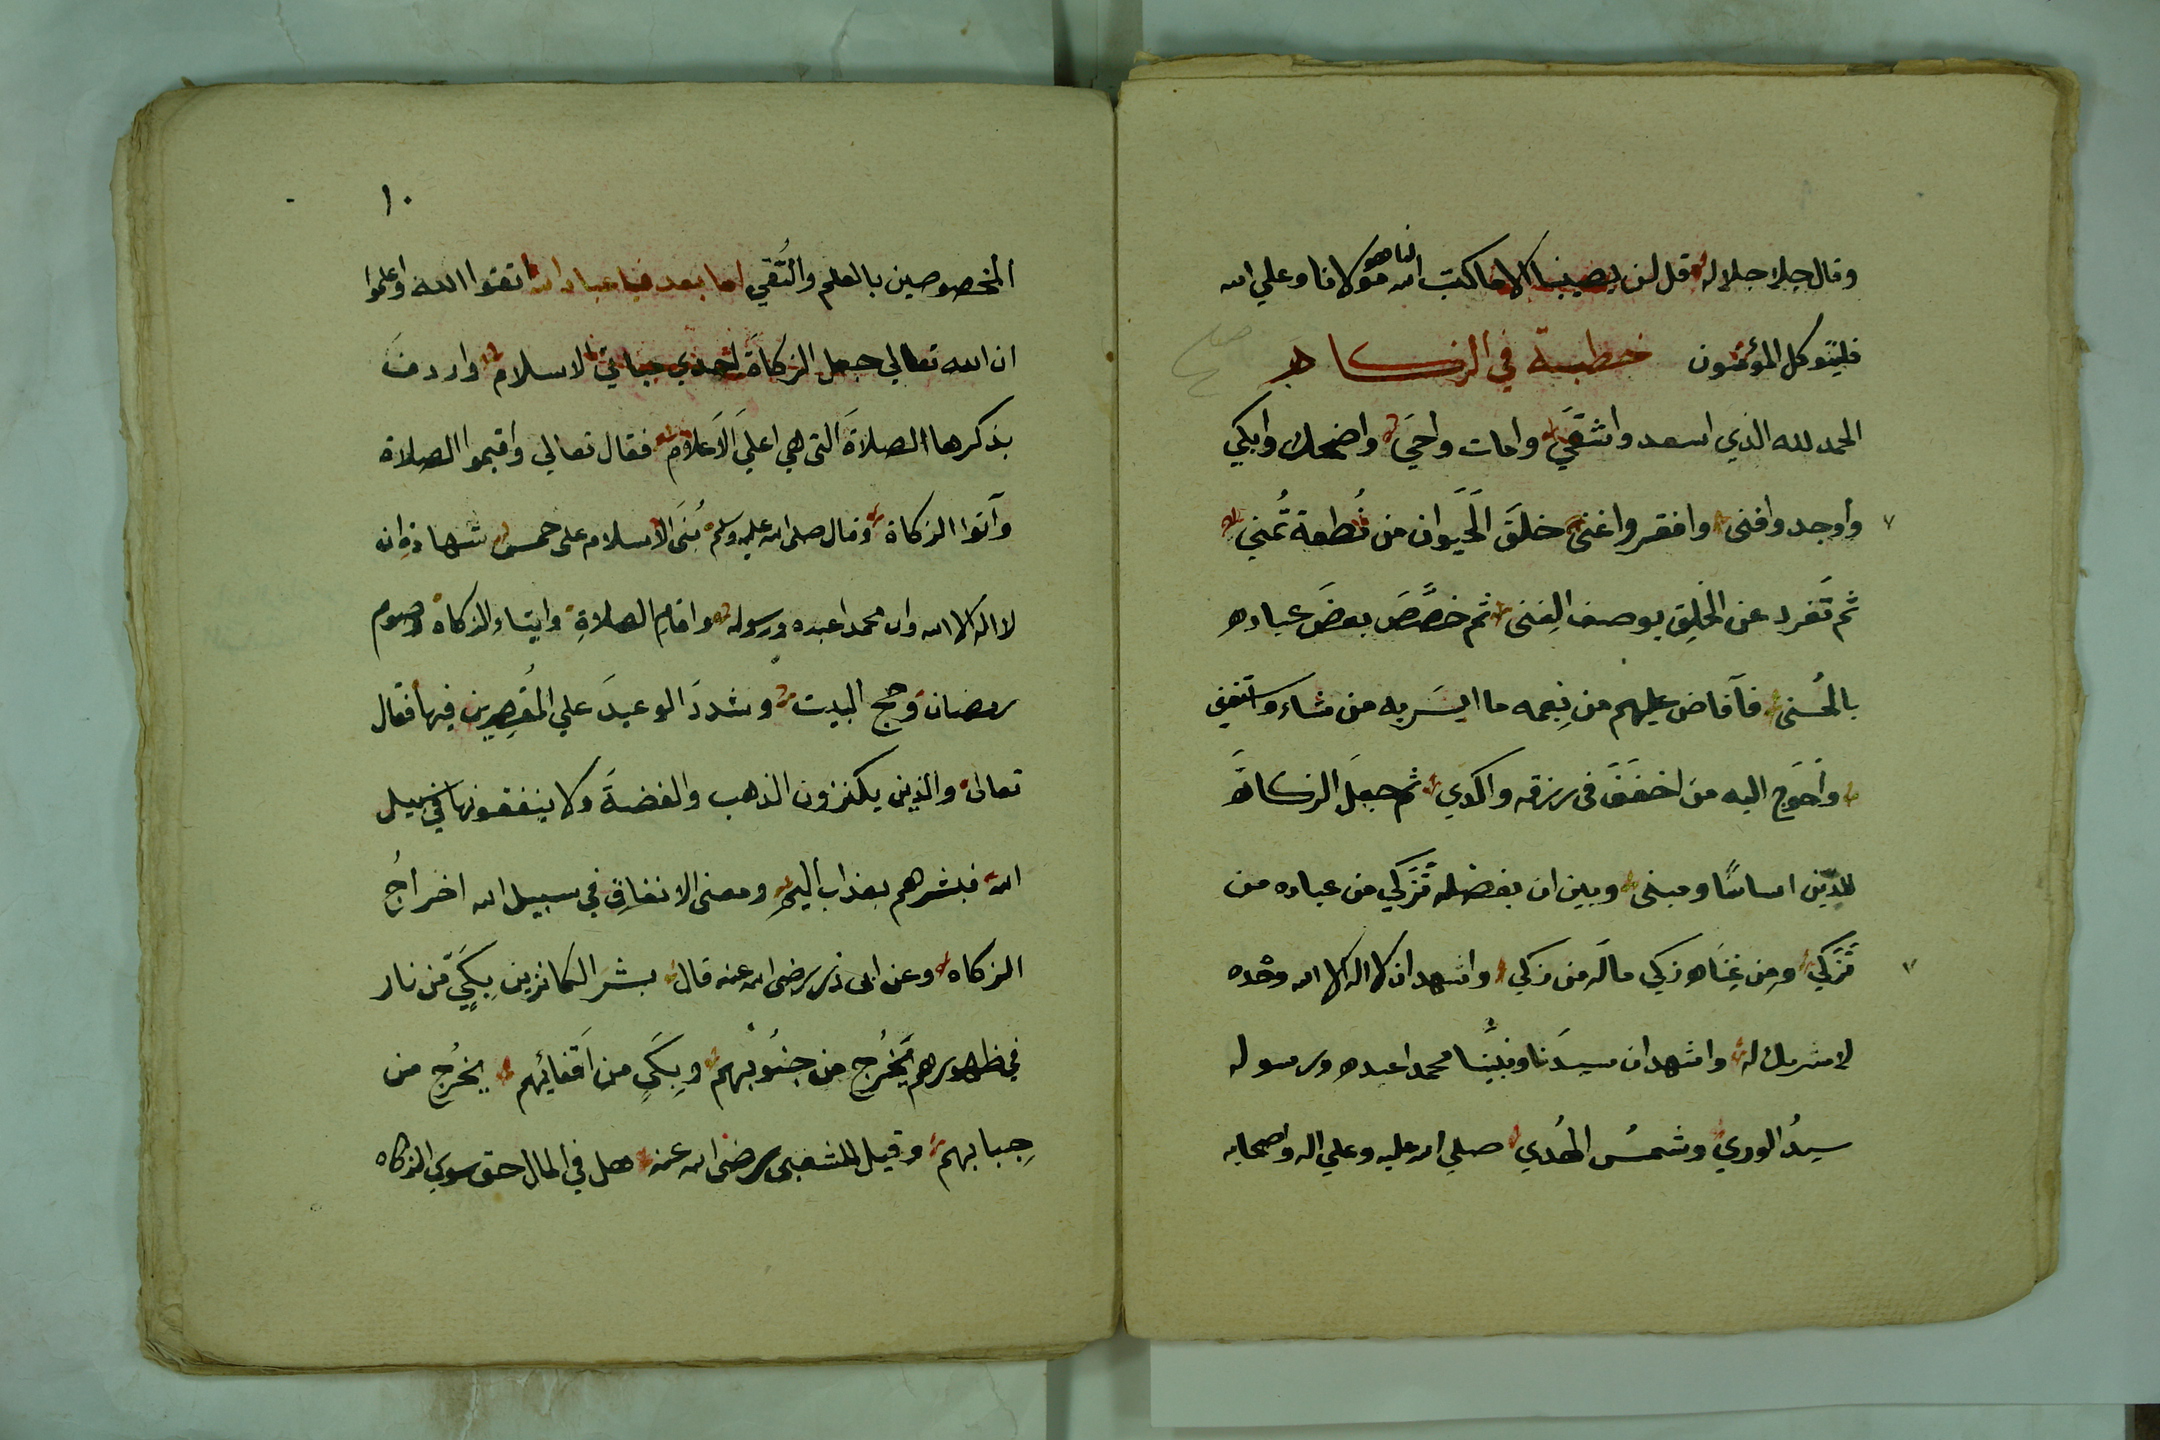 وقال جل جلاله قل لن يصيبنا الا ما كتب الله لنا هو مولانا وعلي الله
فليتوكل المؤمنون خطبة في الزكاه
الحمد لله الذي اسعد واشقَي وامات واحيَ واضحك وابكي
وأوجد وافنى وافقر واغنى خلَق الَحَيَوان من نُطفة تُمني
ثم تَفرد عن الخلِق بوصف الِغنى ثم خصَّصَ بعضَ عباده
بالحُسنى فآفاض عليهم من نِعمه ما ايسَر به من شاء واستغنى
وأَحَوج اليه من اخفَقَ في رزقه واكدي ثم جعلَ الزكاةَ
للدِّين اساسًا ومبنى وبين ان بفضله تَزَكي من عباده من
تَزَكي ومِن غِنَاه زكي مالَه من زكي واشهد ان لا اله الا الله وحْده
لا شريك له واشهد ان سيدَنا ونبيَّنا محمدا عبده ورسوله
سيدُ الوري وشمسُ الهُدي صلي الله عليه وعلي اله واصحابه
١٠
المخصوصين بالعلم والتُقي اما بعد فيا عباد الله اتقوا الله واعلموا
ان الله تعالي جعل الزكاةَ احدي مباني الاسلام واردفَ
بذكرها الصلاةَ التي هي اعلَي الَاعلام فقال تعالي واقيموا الصلاة
وآتوا الزكاة وقال صلى الله عليه وسلم بُنىَ الاسلام على خمس شهادةِ ان
لا اله الا الله وان محمدا عبده ورسوله واقامِ الصلاةِ وايتاء الزكاة وصوم
رمضان وحج البيت وشددَ الوعيدَ علي المُقصِرِين فيها فقال
تعالى والذين يكنزون الذهب والفضةَ ولا ينفقونها في سبيل
الله فبشرهم بعذاب أليم ومعنى الانفاقِ في سبيل الله اخراجُ
الزكاه وعن ابى ذر رضى الله عنه قال بشر الكانزين بِكَيٍّ من نار
في ظهورهم يَخُرج من جنُوبهم وبِكَيٍ من اَقفائِهم يخُرج من
جِباههم وقيل للشعبى رضى الله عنه هل في المال حق سوي الزكاه